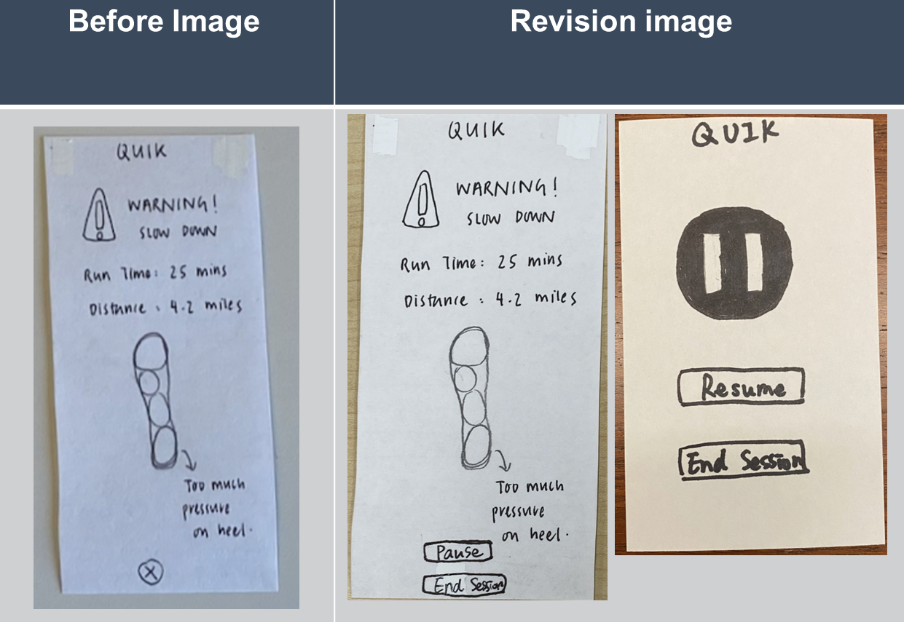 Before Image
Revision image
QUIK
WARNING!
SLOW DOWN
Run Time: 25 mins
Distance : 4.2 miles
Too much
pressure
on heel.
QUIK
WARNING!
SLOW DOWN
Run Time: 25 mins
Distance : 4.2 miles
Too much
pressure
on heel.
Pause
End Session
QUIK
Resume
End Session